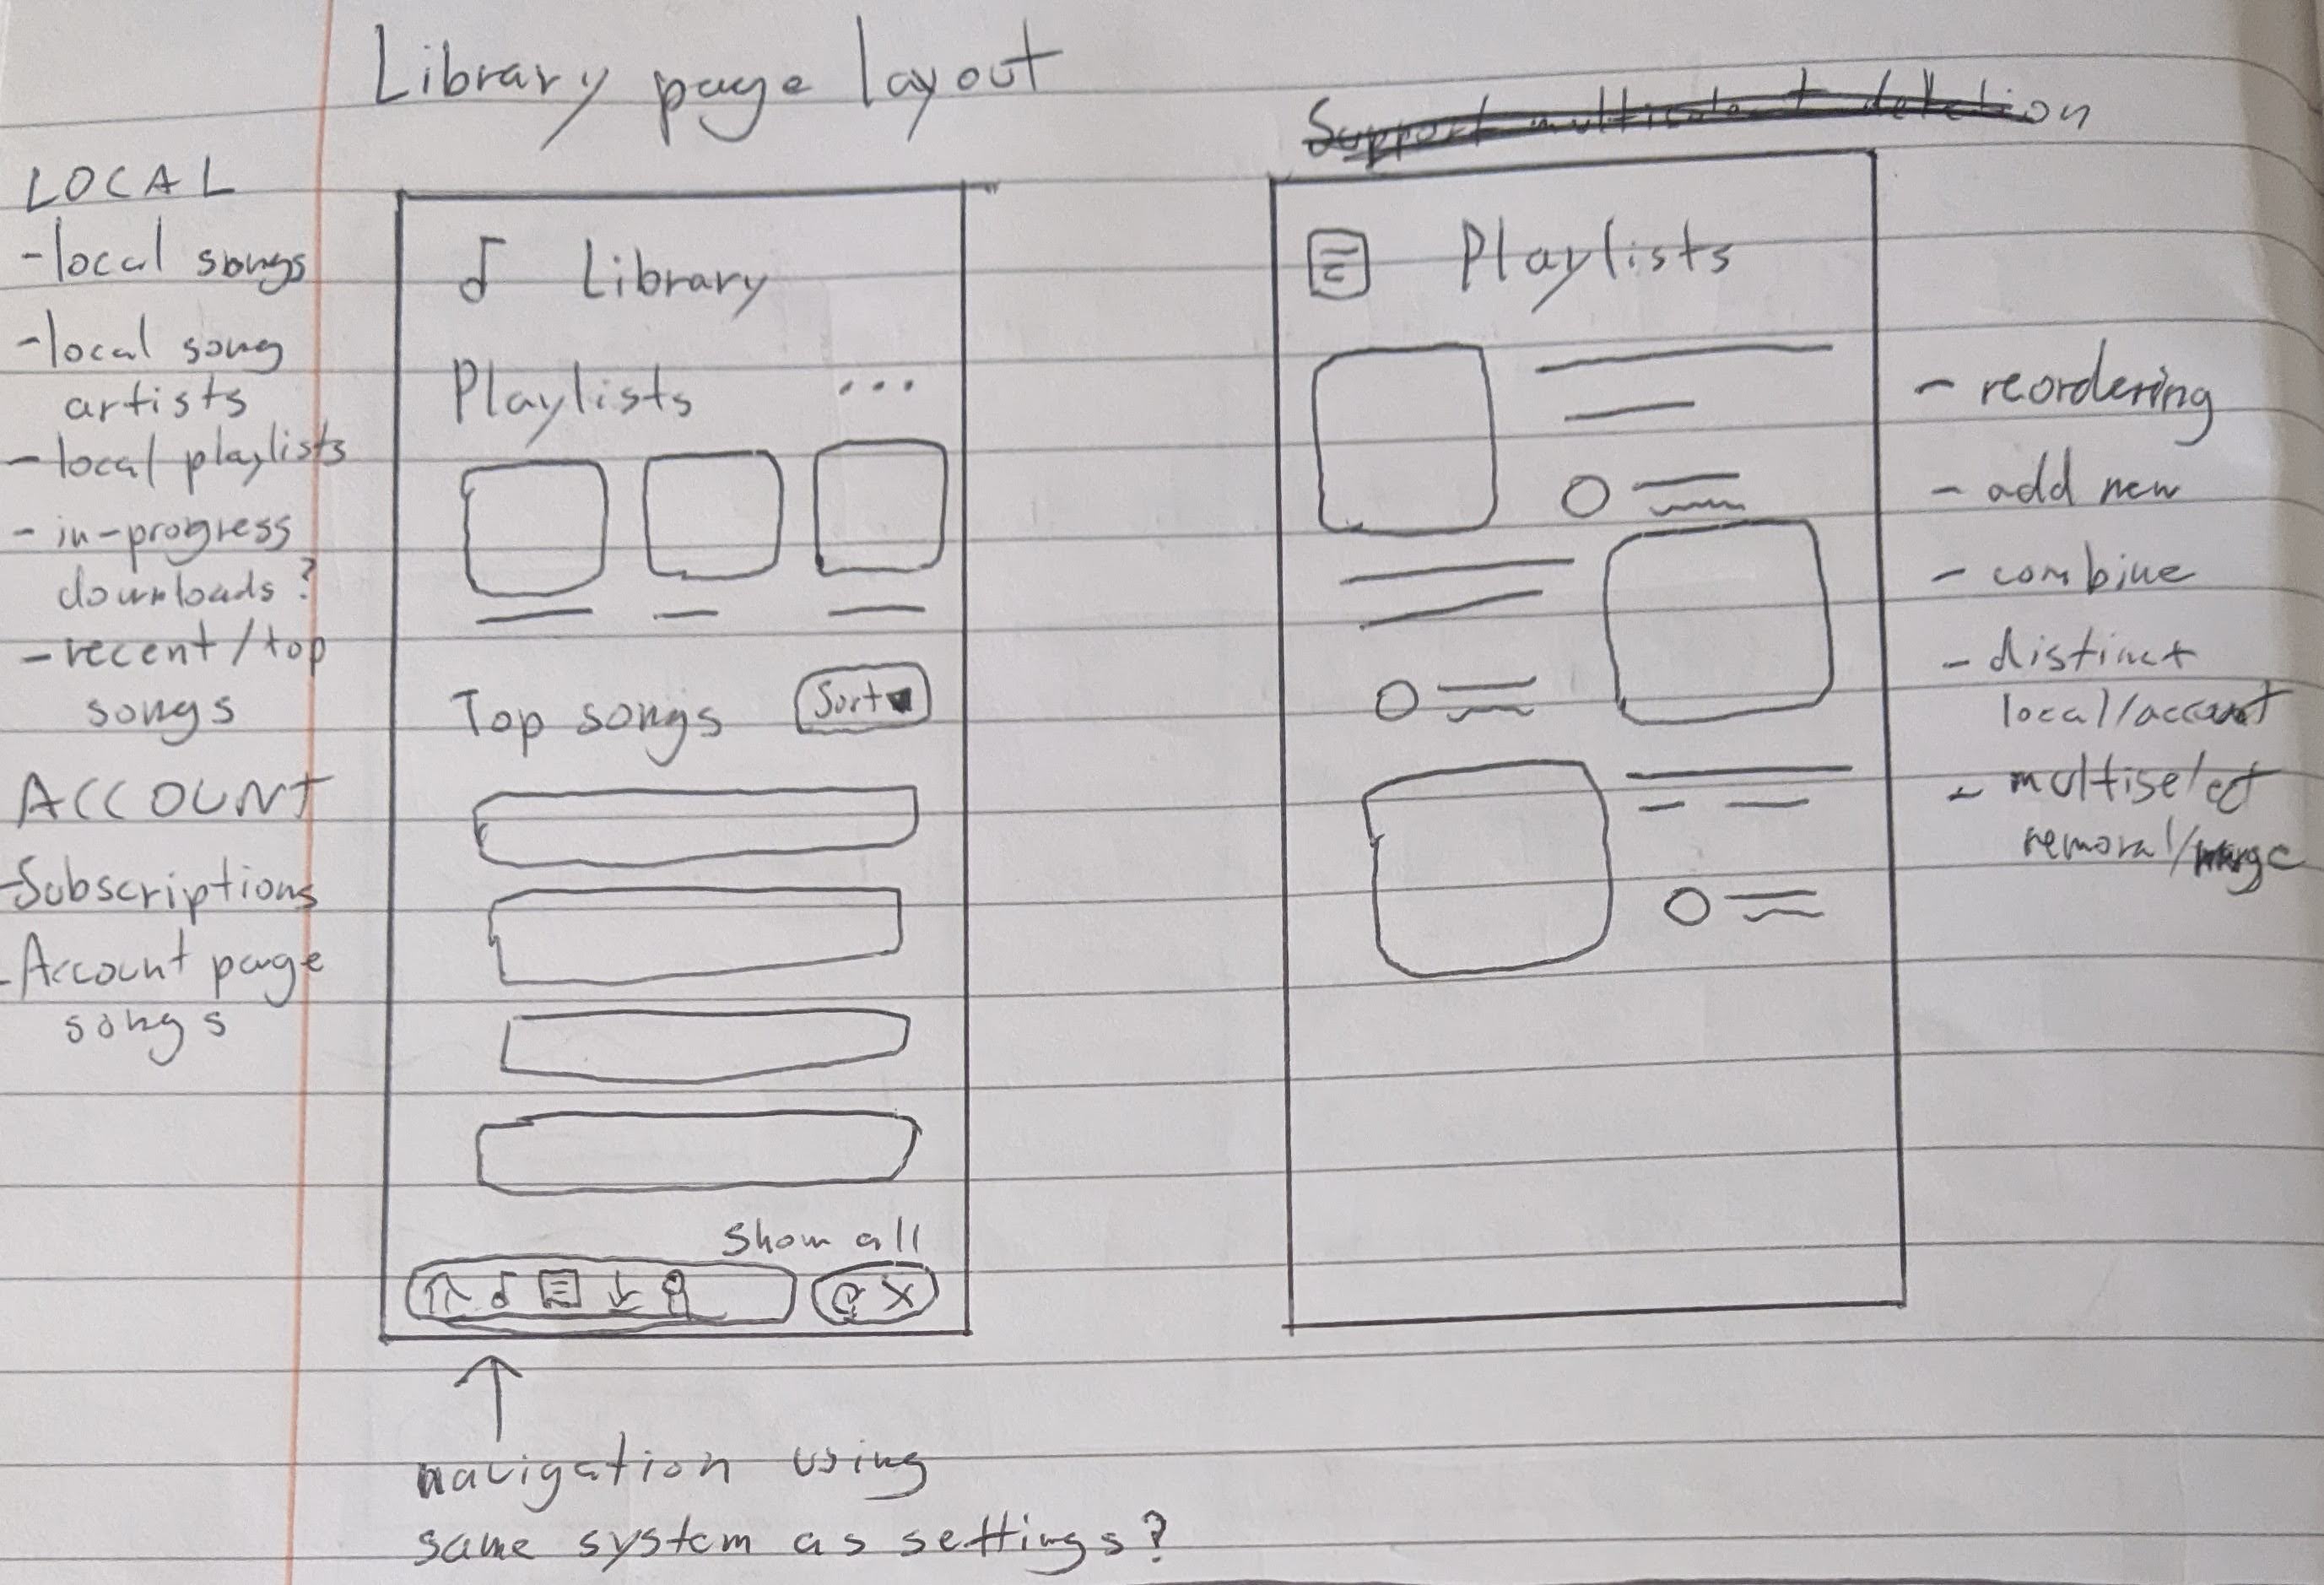 Library page layout
Support multiselect deletion
LOCAL
- local songs
- local song
artists
- local playlists
- in-progress
downloads?
- recent/top
songs
ACCOUNT
- Subscriptions
- Account page
songs
Library
Playlists ...
Top songs Sort
Show all
navigation using
same system as settings?
Playlists
- reordering
- add new
- combine
- distinct
local/account
- multiselect
removal/merge